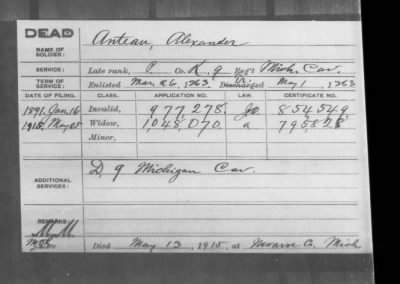 DEAD
NAME OF SOLDIER: Anteau, Alexander
SERVICE: Late rank, P. Co. K, 9 Reg't Mich. Cav.
TERM OF SERVICE: Enlisted Mar. 26, 1863 Discharged May 1, 1863
DATE OF FILING. CLASS. APPLICATION NO. LAW. CERTIFICATE NO.
1891. Jan. 16 Invalid, 977,278. 854,549.
1915. May 25 Widow, 1,048,070. 795828
Minor,
ADDITIONAL SERVICES: D, 9 Michigan Cav
REMARKS:
Died May 13, 1915, at Monroe Co. Mich